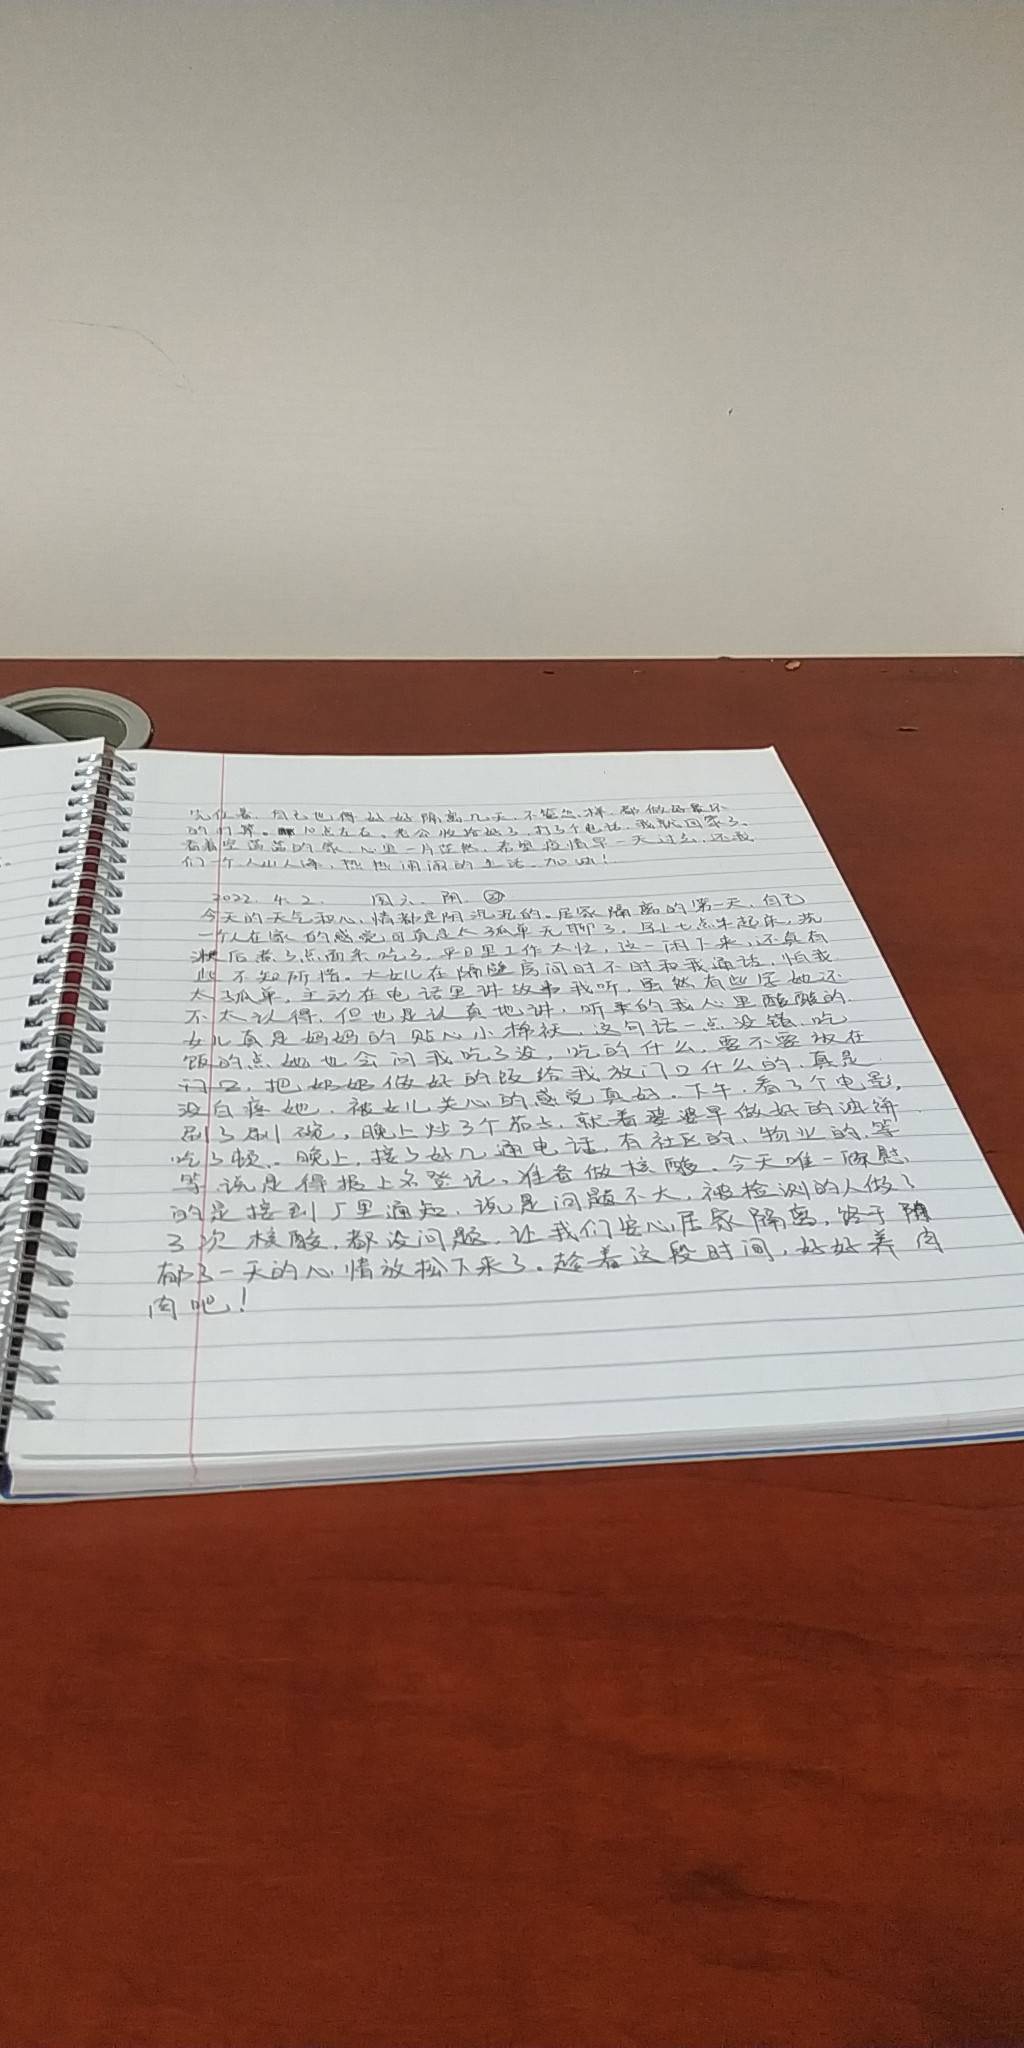 自己也得好好隔离几天,不管怎样,都做好最坏
的打算。10点左右,老公收拾好了,打了个电话,我就回家了。
看着空荡荡的家,心里一片茫然,希望疫情早一天过去,还我
们一个人山人海,热热闹闹的生活。加油!
2022. 4. 2. 周六. 阴.
今天的天气和心情都是阴沉沉的。居家隔离的第一天,自己
一个人在家的感觉可真是太孤单无聊了。早上七点半起床,洗
漱后煮了点面条吃了,平日里工作太忙,这一闲下来,还真有
些不知所措。大女儿在隔壁房间时不时和我通话,怕我
太孤单,主动在电话里讲故事我听,虽然有些字她还
不太认得,但也是认真地讲,听来的我心里酸酸的.
女儿真是妈妈的贴心小棉袄,这句话一点没错.吃
饭的点她也会问我吃了没,吃的什么,要不要放在
门口,把奶奶做好的饭给我放门口什么的,真是
没白疼她.被女儿关心的感觉真好.下午,看了个电影,
刷了刷碗,晚上炒了个茄子,就着婆婆早做好的油饼
吃了顿.晚上,接了好几通电话,有社区的、物业的,等
等,说是得报上名登记,准备做核酸.今天唯一欣慰
的是接到厂里通知,说是问题不大,被检测的人做了
3次核酸,都没问题,让我们安心居家隔离,终于
郁了一天的心情放松下来了.趁着这段时间,好好养肉
肉吧!